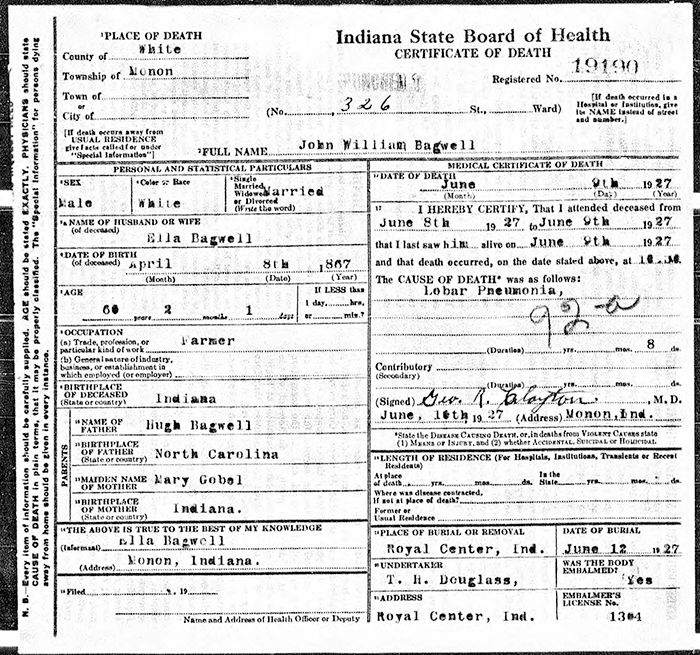 N. B.—Every item of information should be carefully supplied. AGE should be stated EXACTLY. PHYSICIANS should state
CAUSE OF DEATH in plain terms, that it may be properly classified. The "Special Information" for persons dying
away from home should be given in every instance.
Indiana State Board of Health
CERTIFICATE OF DEATH
Registered No. 19190
¹PLACE OF DEATH
County of White
Township of Monon
Town of
or
City of
(No. 326 St., Ward)
[If death occurred in a
Hospital or Institution, give
its NAME instead of street
and number.]
[If death occurs away from
USUAL RESIDENCE
give facts called for under
"Special Information"]
²FULL NAME John William Bagwell
PERSONAL AND STATISTICAL PARTICULARS
³SEX
Male
⁴Color or Race
White
⁵Single
Married,
Widowed
or Divorced
(Write the word)
Married
NAME OF HUSBAND OR WIFE
(of deceased)
Ella Bagwell
⁶DATE OF BIRTH
(of deceased) April 8th 1867
(Month) (Date) (Year)
⁷AGE
60 years 2 months 1 days
If LESS than
1 day, hrs.
or min.?
⁸OCCUPATION
(a) Trade, profession, or
particular kind of work Farmer
(b) General nature of industry,
business, or establishment in
which employed (or employer)
⁹BIRTHPLACE
OF DECEASED
(State or country) Indiana
PARENTS
¹⁰NAME OF
FATHER Hugh Bagwell
¹¹BIRTHPLACE
OF FATHER
(State or country) North Carolina
¹²MAIDEN NAME
OF MOTHER Mary Gobel
¹³BIRTHPLACE
OF MOTHER
(State or country) Indiana.
¹⁴THE ABOVE IS TRUE TO THE BEST OF MY KNOWLEDGE
(Informant) Ella Bagwell
(Address) Monon, Indiana.
¹⁵Filed , 19
Name and Address of Health Officer or Deputy
MEDICAL CERTIFICATE OF DEATH
¹⁶DATE OF DEATH
June 9th 1927
(Month) (Day) (Year)
¹⁷ I HEREBY CERTIFY, That I attended deceased from
June 8th 1927 to June 9th 1927
that I last saw him alive on June 9th 1927
and that death occurred, on the date stated above, at
The CAUSE OF DEATH* was as follows:
Lobar Pneumonia,
(Duration) yrs. mos. 8 ds.
Contributory
(Secondary)
(Duration) yrs. mos. ds.
(Signed) Geo. R. Clayton M.D.
June, 10th 1927 (Address) Monon,Ind.
*State the DISEASE CAUSING DEATH, or, in deaths from VIOLENT CAUSES state
(1) MEANS OF INJURY, and (2) whether ACCIDENTAL, SUICIDAL OR HOMICIDAL.
¹⁸LENGTH OF RESIDENCE (For Hospitals, Institutions, Transients or Recent
Residents)
At place
of death yrs. mos. ds.
In the
State yrs. mos. ds.
Where was disease contracted,
If not at place of death?
Former or
Usual Residence
¹⁹PLACE OF BURIAL OR REMOVAL
Royal Center, Ind.
DATE OF BURIAL
June 12 1927
²⁰UNDERTAKER
T. H. Douglass,
WAS THE BODY
EMBALMED?
Yes
²¹ADDRESS
Royal Center, Ind.
EMBALMER'S
LICENSE No.
1304